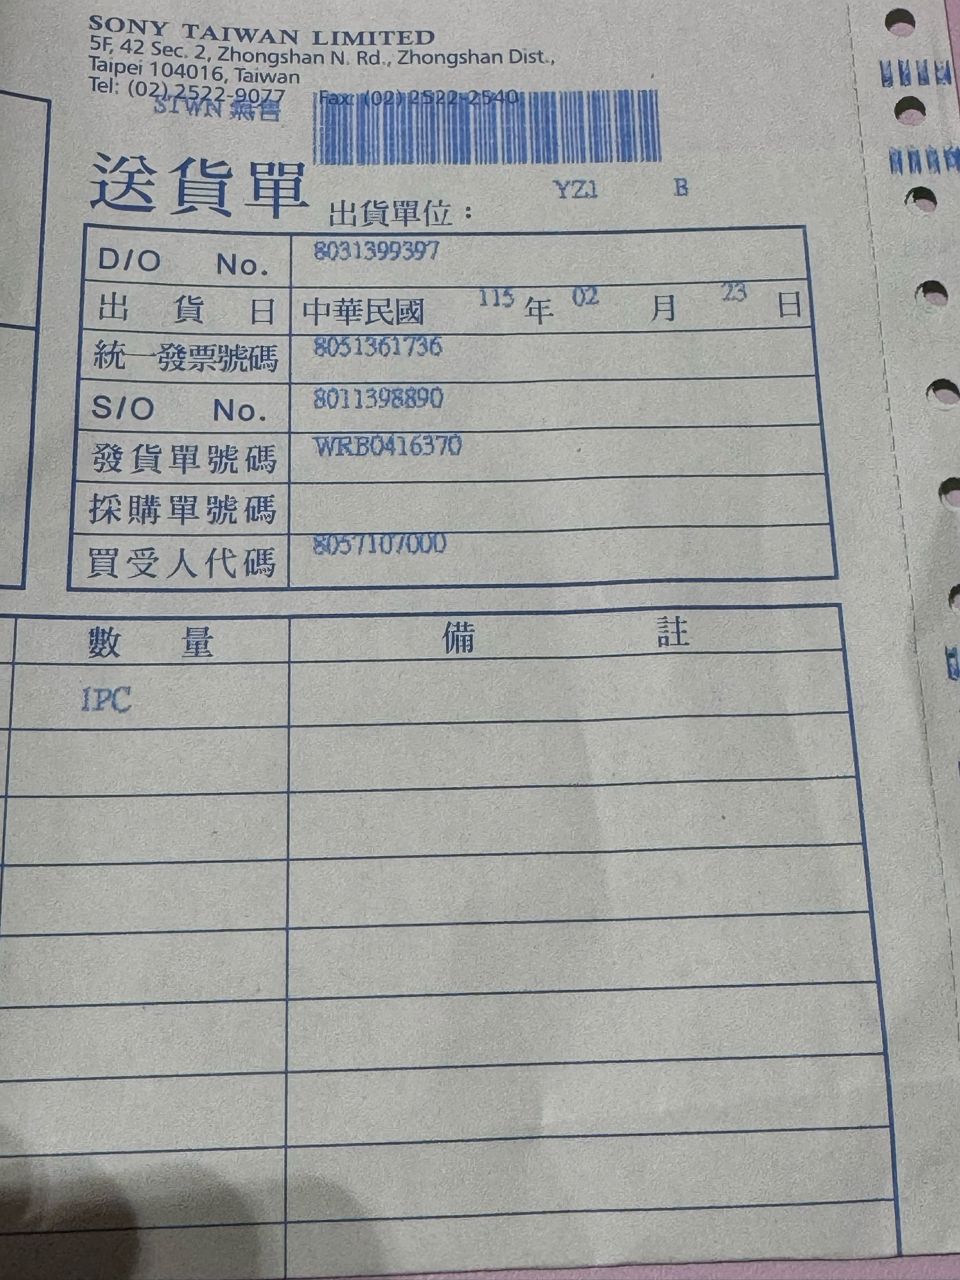 SONY TAIWAN LIMITED
5F, 42 Sec. 2, Zhongshan N. Rd., Zhongshan Dist.,
Taipei 104016, Taiwan
Tel: (02) 2522-9077 Fax: (02) 2522-2540
STWN
送貨單
出貨單位： YZ1 B
D/O No. 8031399397
出貨日 中華民國 115 年 02 月 23 日
統一發票號碼 8051361736
S/O No. 8011398890
發貨單號碼 WRB0416370
採購單號碼
買受人代碼 8057107000
數量 備註
1PC